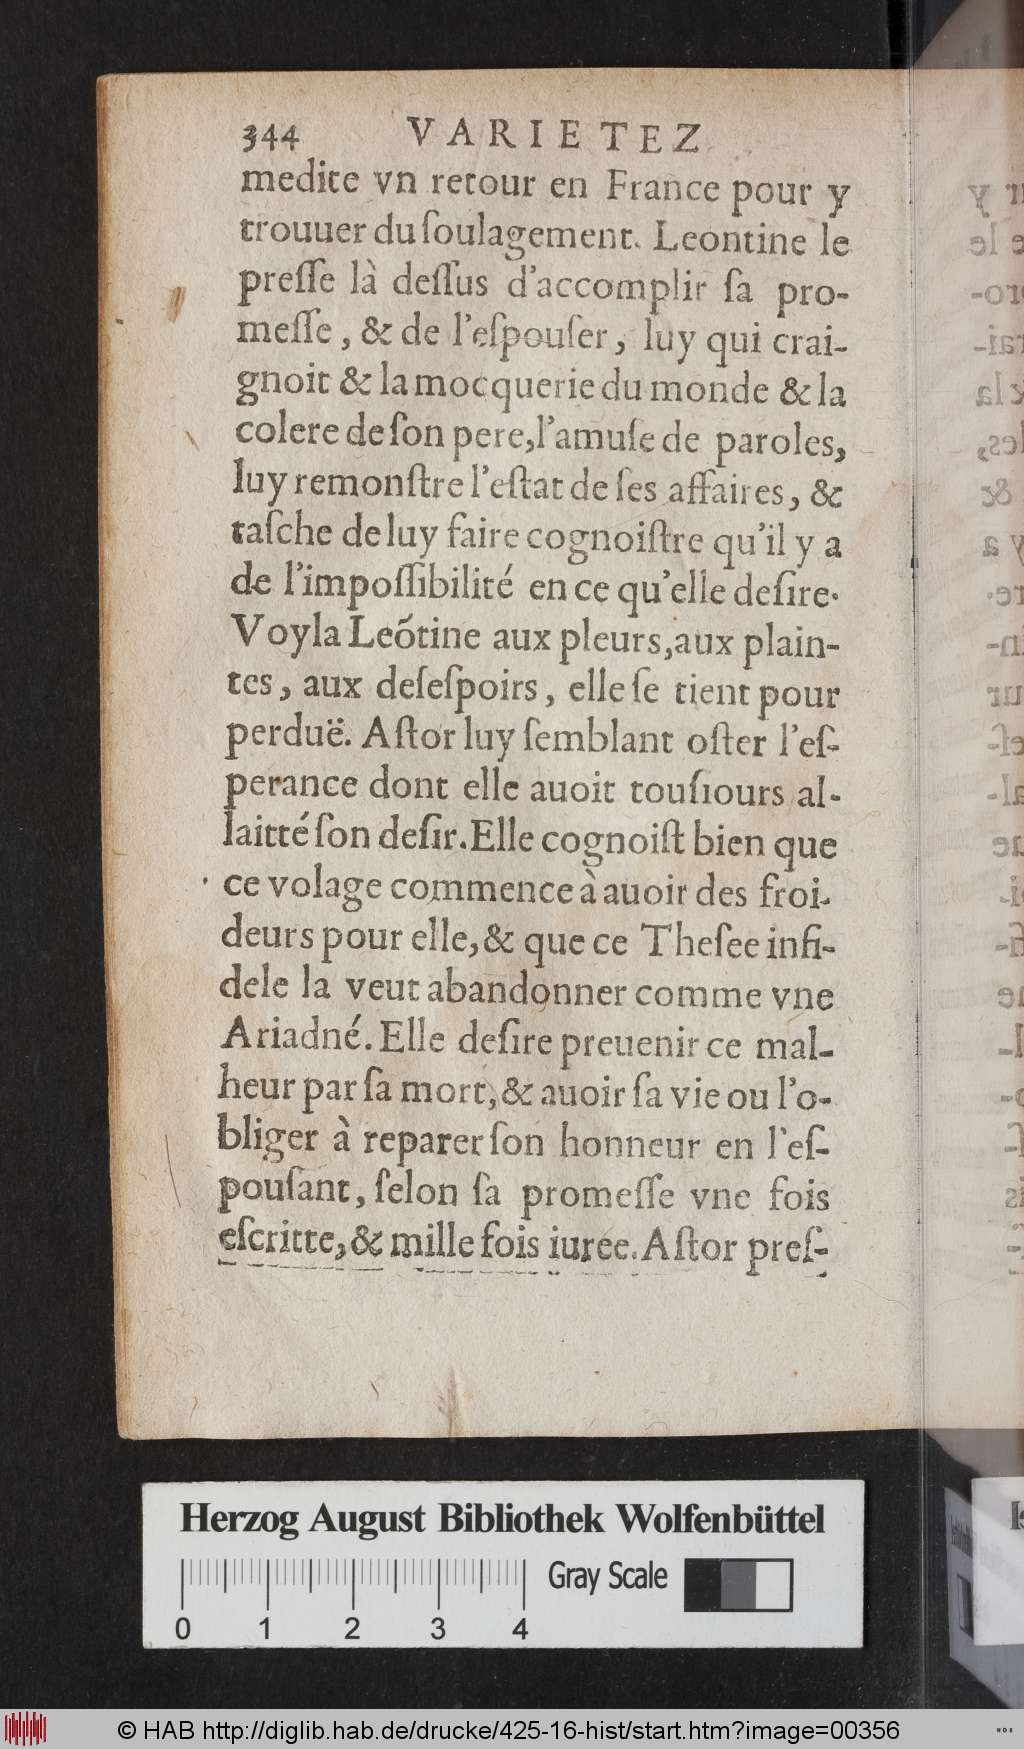 344 VARIETEZ
medite vn retour en France pour y
trouuer du ſoulagement. Leontine le
preſſe là deſſus d'accomplir ſa pro-
meſſe, & de l'eſpouſer, luy qui crai-
gnoit & la mocquerie du monde & la
colere de ſon pere, l'amuſe de paroles,
luy remonſtre l'eſtat de ſes affaires, &
taſche de luy faire cognoiſtre qu'il y a
de l'impoſſibilité en ce qu'elle deſire.
Voyla Leõtine aux pleurs, aux plain-
tes, aux deſeſpoirs, elle ſe tient pour
perduë. Aſtor luy ſemblant oſter l'eſ-
perance dont elle auoit touſiours al-
laitté ſon deſir. Elle cognoiſt bien que
ce volage commence à auoir des froi-
deurs pour elle, & que ce Theſee infi-
dele la veut abandonner comme vne
Ariadné. Elle deſire preuenir ce mal-
heur par ſa mort, & auoir ſa vie ou l'o-
bliger à reparer ſon honneur en l'eſ-
pouſant, ſelon ſa promeſſe vne fois
eſcritte, & mille fois iuree. Aſtor preſ-
Herzog August Bibliothek Wolfenbüttel
Gray Scale
0 1 2 3 4
© HAB http://diglib.hab.de/drucke/425-16-hist/start.htm?image=00356